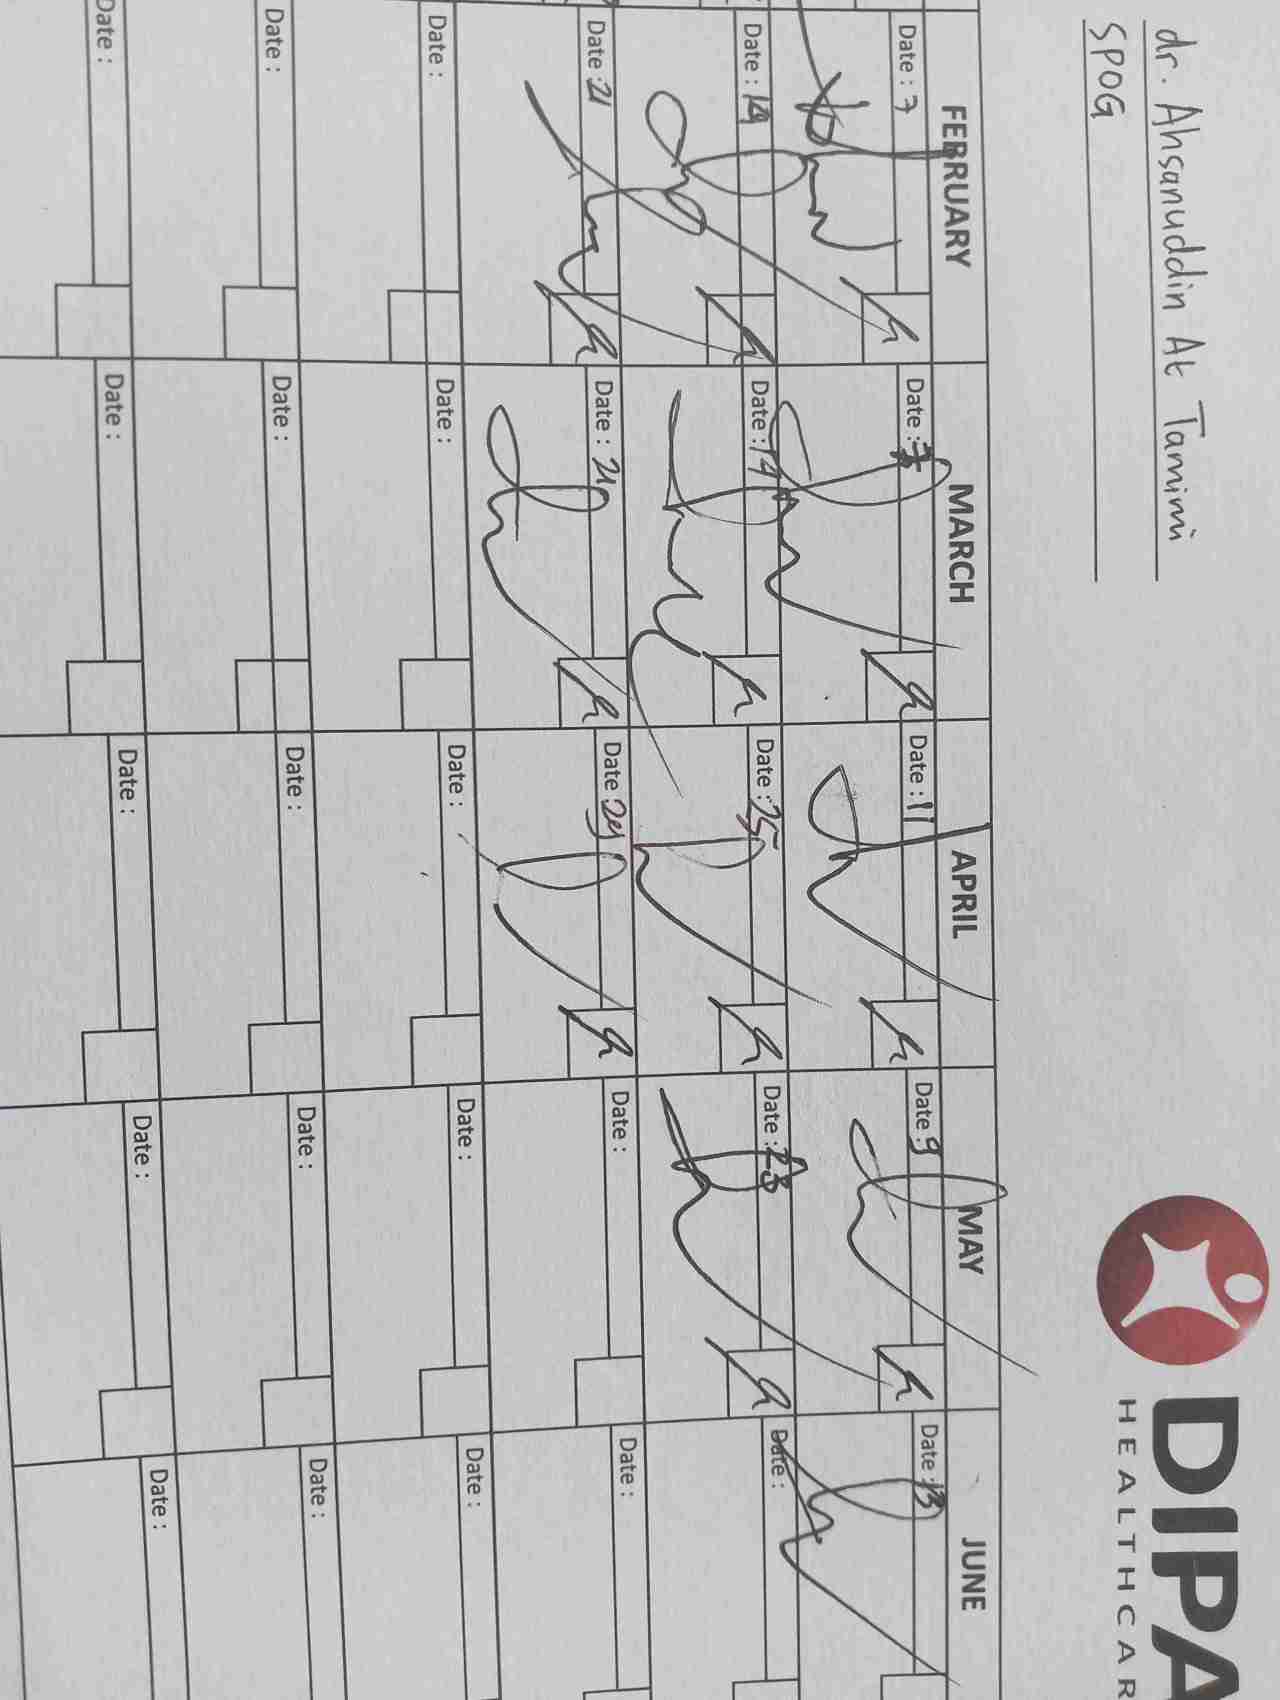 dr. Ahsanuddin At Tamimi
SPOG
DIPA
HEALTHCAR
FEBRUARY MARCH APRIL MAY JUNE
Date : 7 Date : 7 Date : 11 Date : 9 Date : 13
Date : 14 Date : 14 Date : 25 Date : 23 Date :
Date : 21 Date : Date : 29 Date : Date :
Date : Date : Date : Date : Date :
Date : Date : Date : Date : Date :
Date : Date : Date : Date : Date :